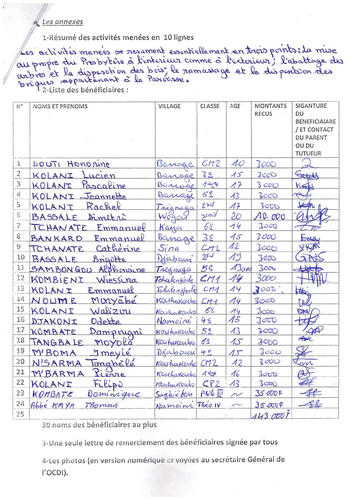 Les annexes
1-Résumé des activités menées en 10 lignes
Les activités menées se resument essentiellement en trois points: la mise
au propre du Presbytère à l'interieur comme à l'exterieur; l'abattage des
arbres et la disposition des bois; le ramassage et la disposition des
briques appartenant à la Paroisse.
2-Liste des bénéficiaires :
N° NOMS ET PRENOMS VILLAGE CLASSE AGE MONTANTS RECUS SIGANTURE DU BENEFICIAIARE / ET CONTACT DU PARENT OU DU TUTUEUR
1 DOUTI Honorine Barrage CM2 10 3000
2 KOLANI Lucien Barrage 3è 15 3000
3 KOLANI Pascaline Barrage 17 3000
4 KOLANI Jeannette Barrage 5è 13 3000
5 KOLANI Rachel 2nd 17 3000
6 BASSALE Dimitri 2nd 20 10.000
7 TCHANATE Emmanuel 6è 14 3000
8 BANKARD Emmanuel Barrage 3è 15 7000
9 TCHANATE Catherine CM2 12 3000
10 BASSALE Brigitte 2nd 19 3000
11 SAMBONGOU 5è 3000
12 KOMBIENI CM1 14 3000
13 KOLANI Emmanuel CM1 14 3000
14 NOUME Monyábé Kouhakouto CM1 14 3000
15 KOLANI Walizou Kouhakouto 6è 14 3000
16 DJAKONI Odette Namoini 4è 15 3000
17 KOMBATE Dampougni Kouhakouto 5è 13 3000
18 TANGBALE Moyola Kouhakouto 6è 15 3000
19 M'BOMA 4è 15 3000
20 N'SARMA Kouhakouto CM2 12 3000
21 M'BARMA Pierre Kouhakouto 16 3000
22 KOLANI Filipo Kouhakouto CP2 13 3000
23 KOMBATE Dominique ~ 35000F
24 Abbé KAYA Thomas Namoini ~ 35000F
25 143.000F
30 noms des bénéficiaires au plus
3-Une seule lettre de remerciement des bénéficiaires signée par tous
4-Les photos (en version numérique envoyées au secrétaire Général de
l'OCDI).